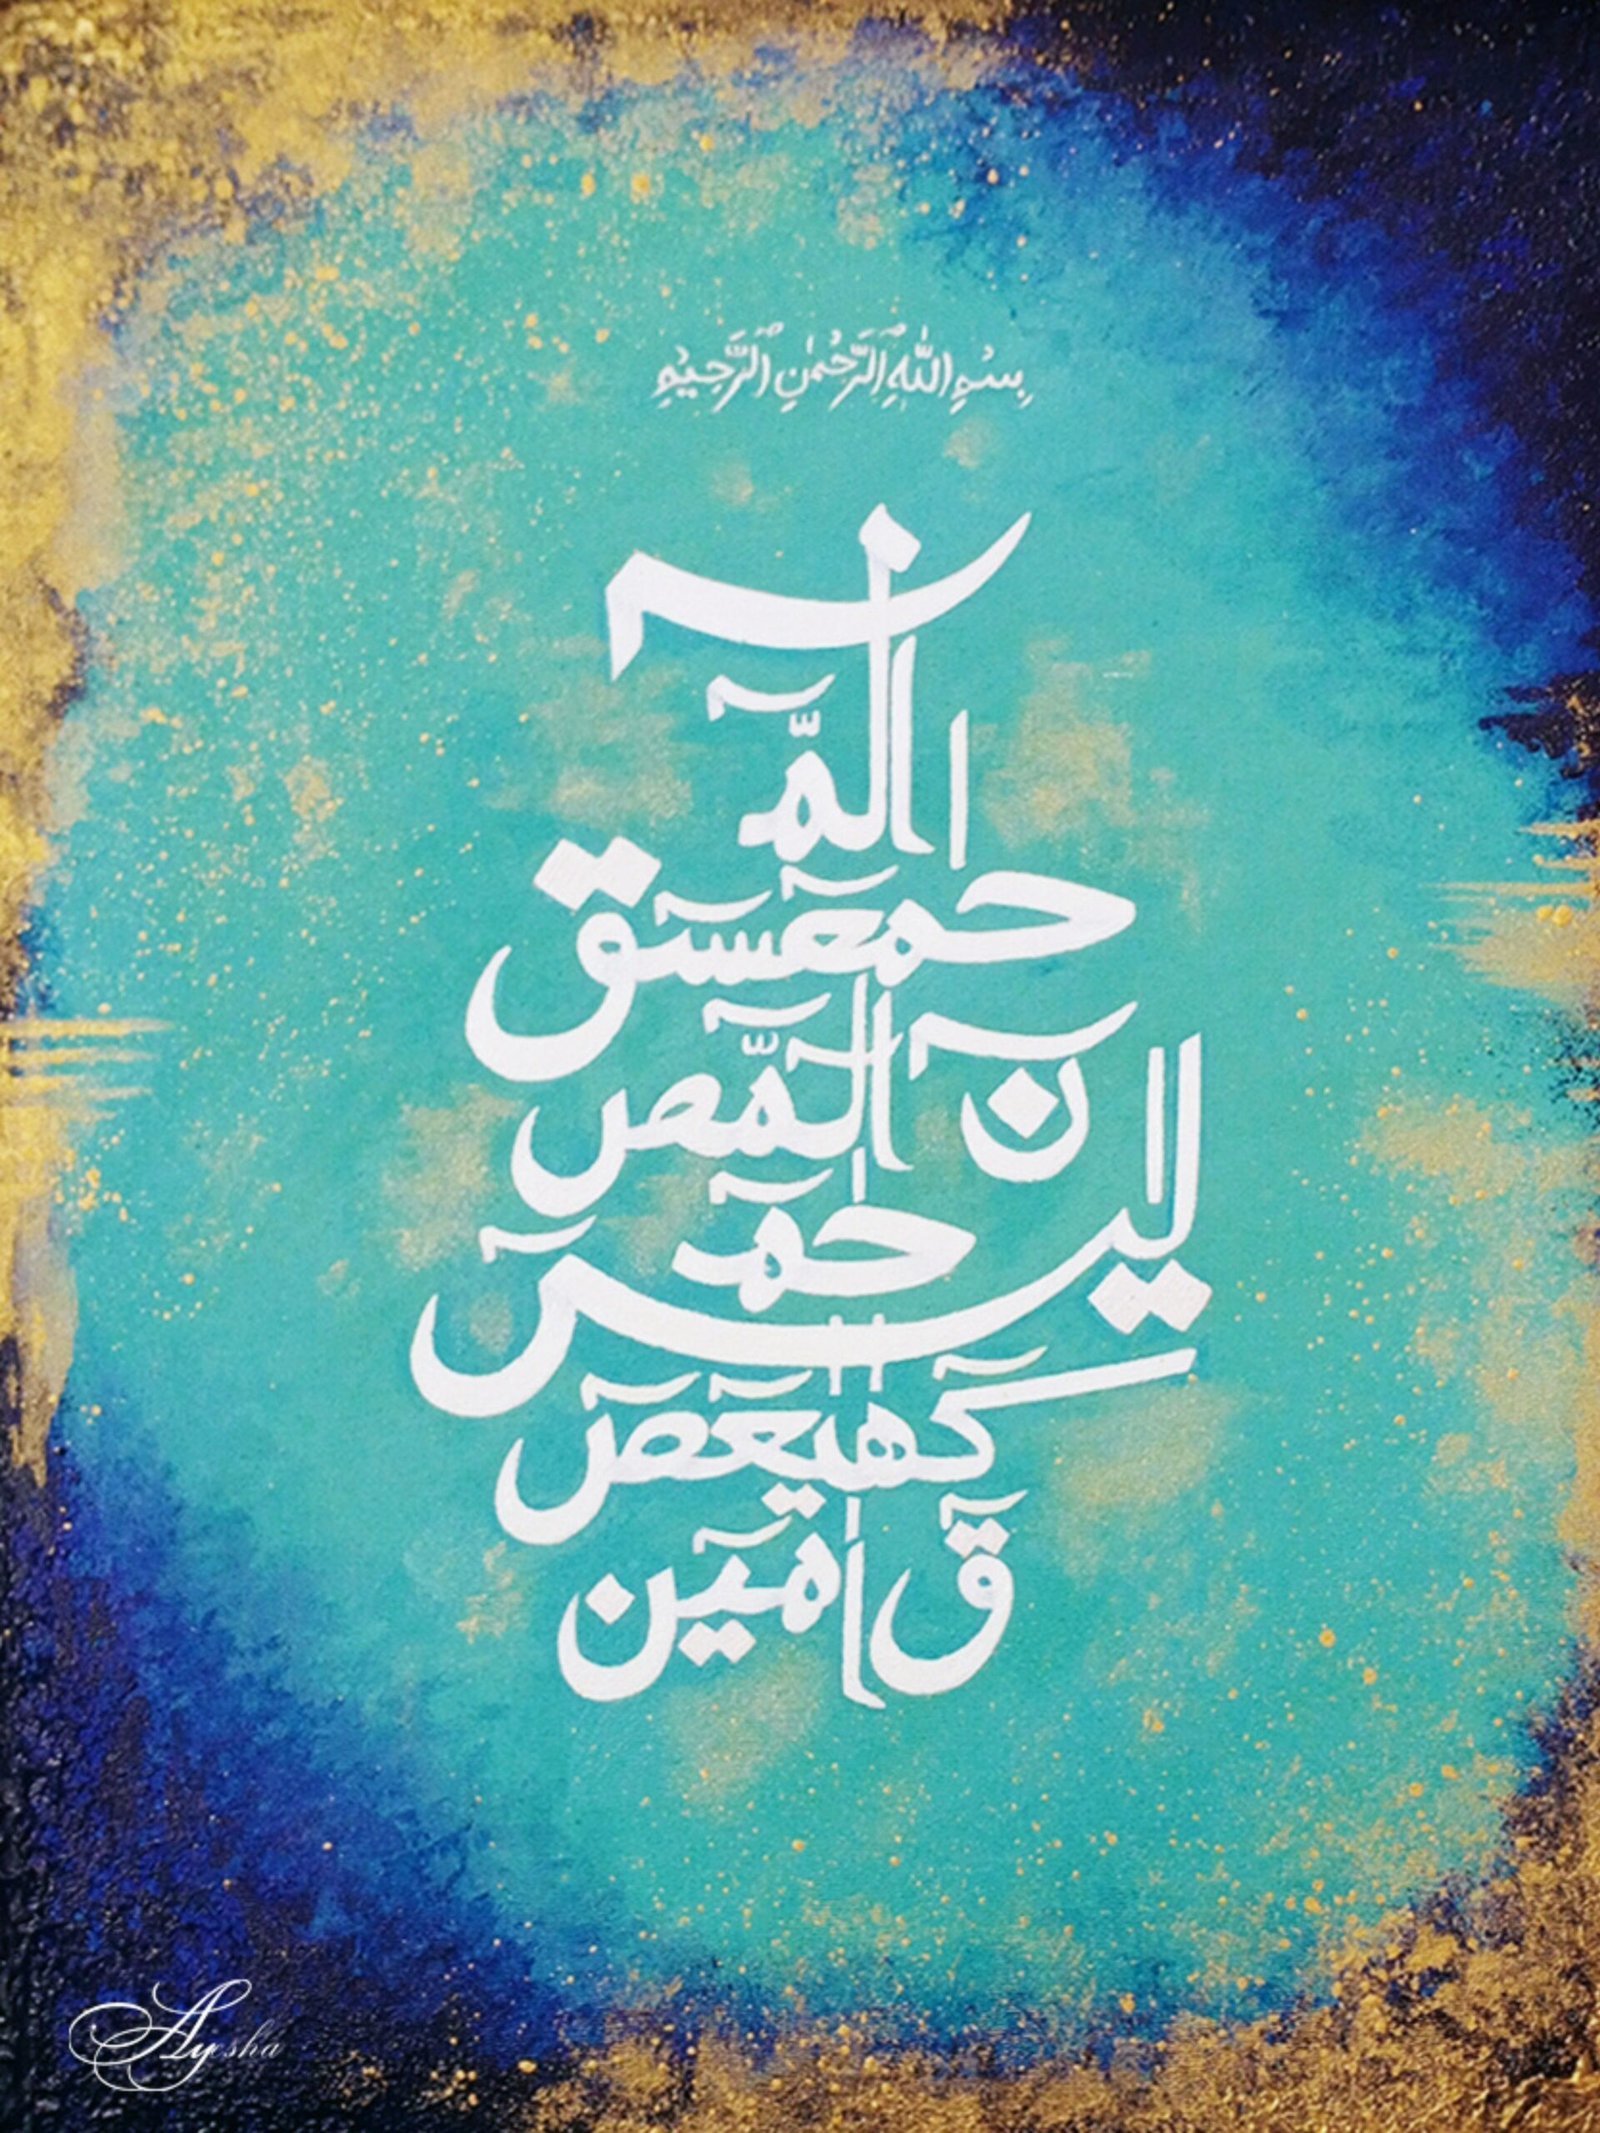 بِسْمِ اللّٰهِ الرَّحْمٰنِ الرَّحِيْمِ
الٓمّٓ
حمٓعٓسٓقٓ
نٓ الٓمّٓصٓ
حٰمٓ
يٰسٓ
كٓهٰيٰعٓصٓ
قٓ اٰمين
Ayesha